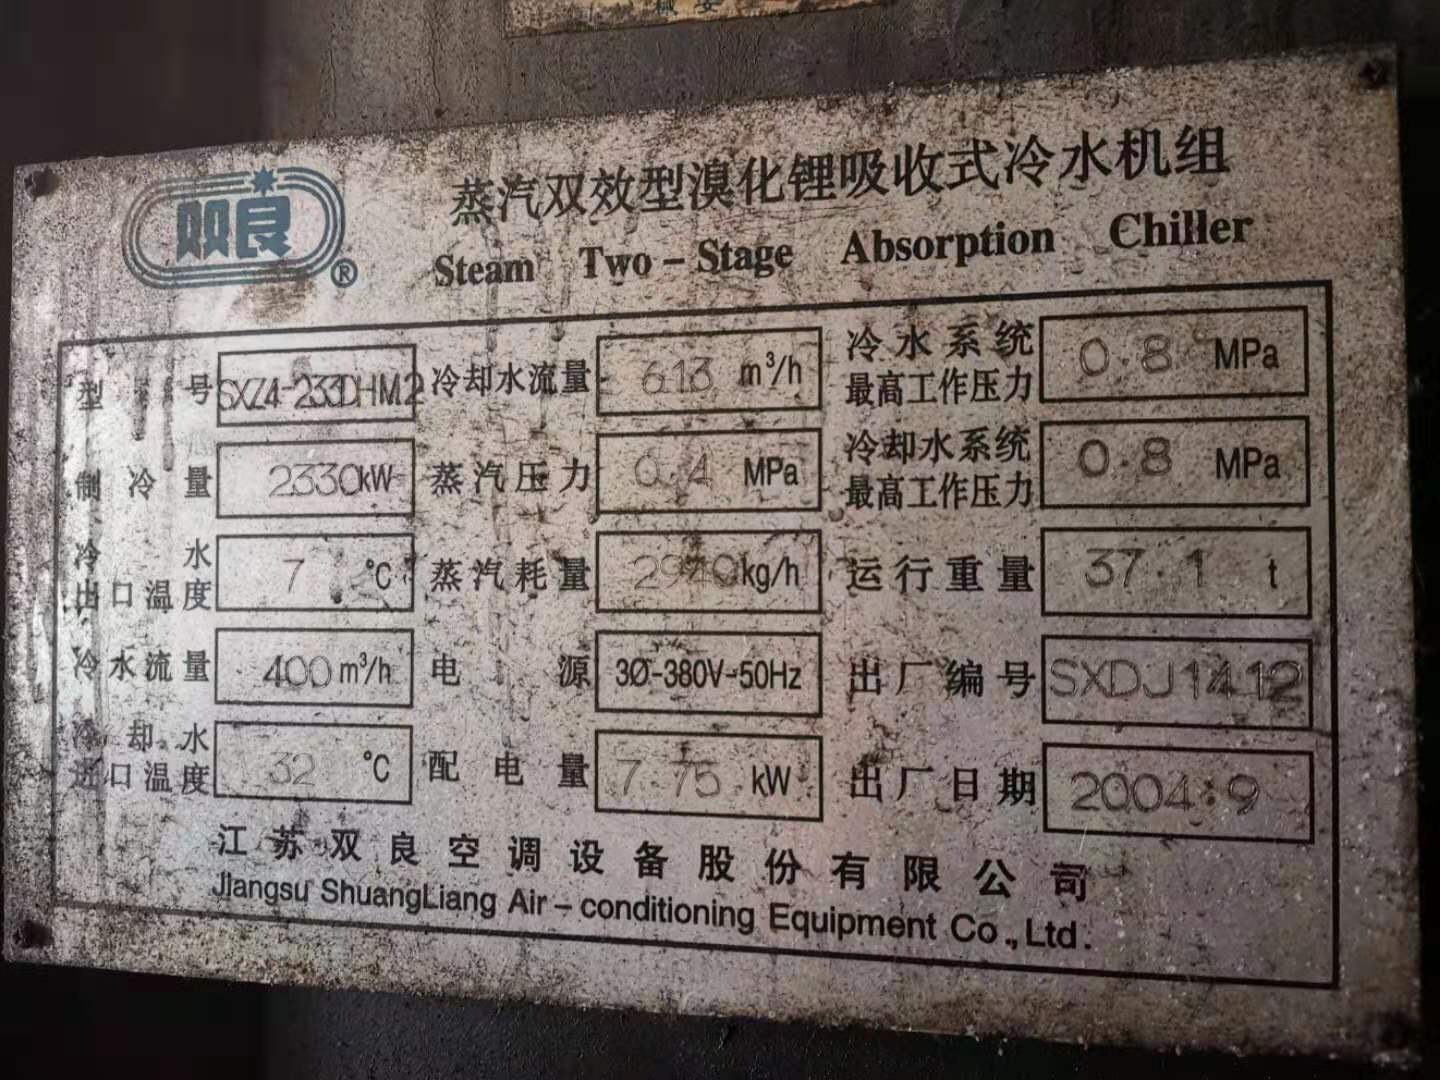 械 安
双良®
蒸汽双效型溴化锂吸收式冷水机组
Steam Two-Stage Absorption Chiller
型号 SXZ4-233DHM2 冷却水流量 613 m³/h 冷水系统最高工作压力 0.8 MPa
制冷量 2330kW 蒸汽压力 0.4 MPa 冷却水系统最高工作压力 0.8 MPa
冷水出口温度 7 ℃ 蒸汽耗量 2940kg/h 运行重量 37.1 t
冷水流量 400 m³/h 电源 3Ø-380V-50Hz 出厂编号 SXDJ1412
冷却水进口温度 32 ℃ 配电量 7.75 kW 出厂日期 2004.9
江苏双良空调设备股份有限公司
Jiangsu ShuangLiang Air-conditioning Equipment Co.,Ltd.